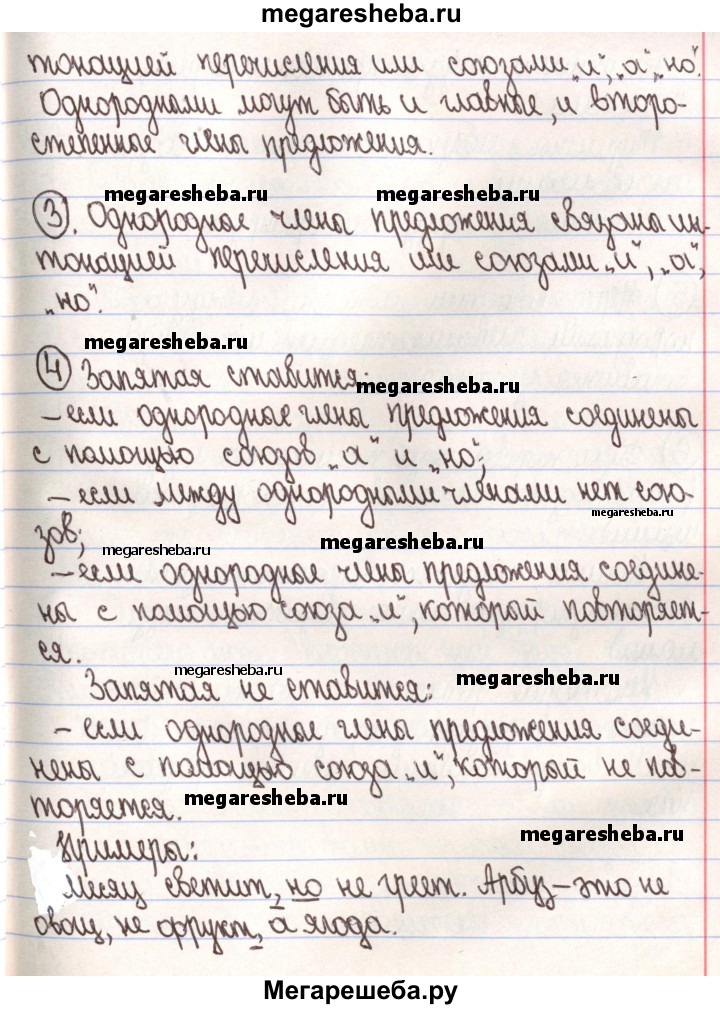 megaresheba.ru
тонацией перечисления или союзами „и“, „а“, „но“.
Однородными могут быть и главные, и второ-
степенные члены предложения.
megaresheba.ru megaresheba.ru
3. Однородные члены предложения связаны ин-
тонацией перечисления или союзами „и“, „а“,
„но“.
megaresheba.ru
4 Запятая ставится:
megaresheba.ru
– если однородные члены предложения соединены
с помощью союзов „а“ и „но“;
– если между однородными членами нет сою-
megaresheba.ru
зов;
megaresheba.ru megaresheba.ru
– если однородные члены предложения соедине-
ны с помощью союза „и“, который повторяет-
ся.
megaresheba.ru megaresheba.ru
Запятая не ставится:
– если однородные члены предложения соеди-
нены с помощью союза „и“, который не пов-
торяется.
megaresheba.ru
megaresheba.ru
Примеры:
Месяц светит, но не греет. Арбуз – это не
овощ, не фрукт, а ягода.
Мегарешеба.ру